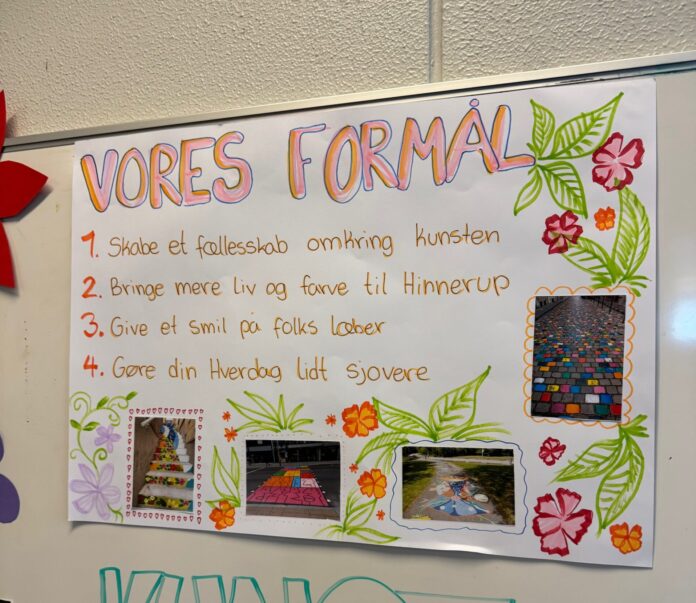 VORES FORMÅL
1. Skabe et fællesskab omkring kunsten
2. Bringe mere liv og farve til Hinnerup
3. Give et smil på folks læber
4. Gøre din Hverdag lidt sjovere